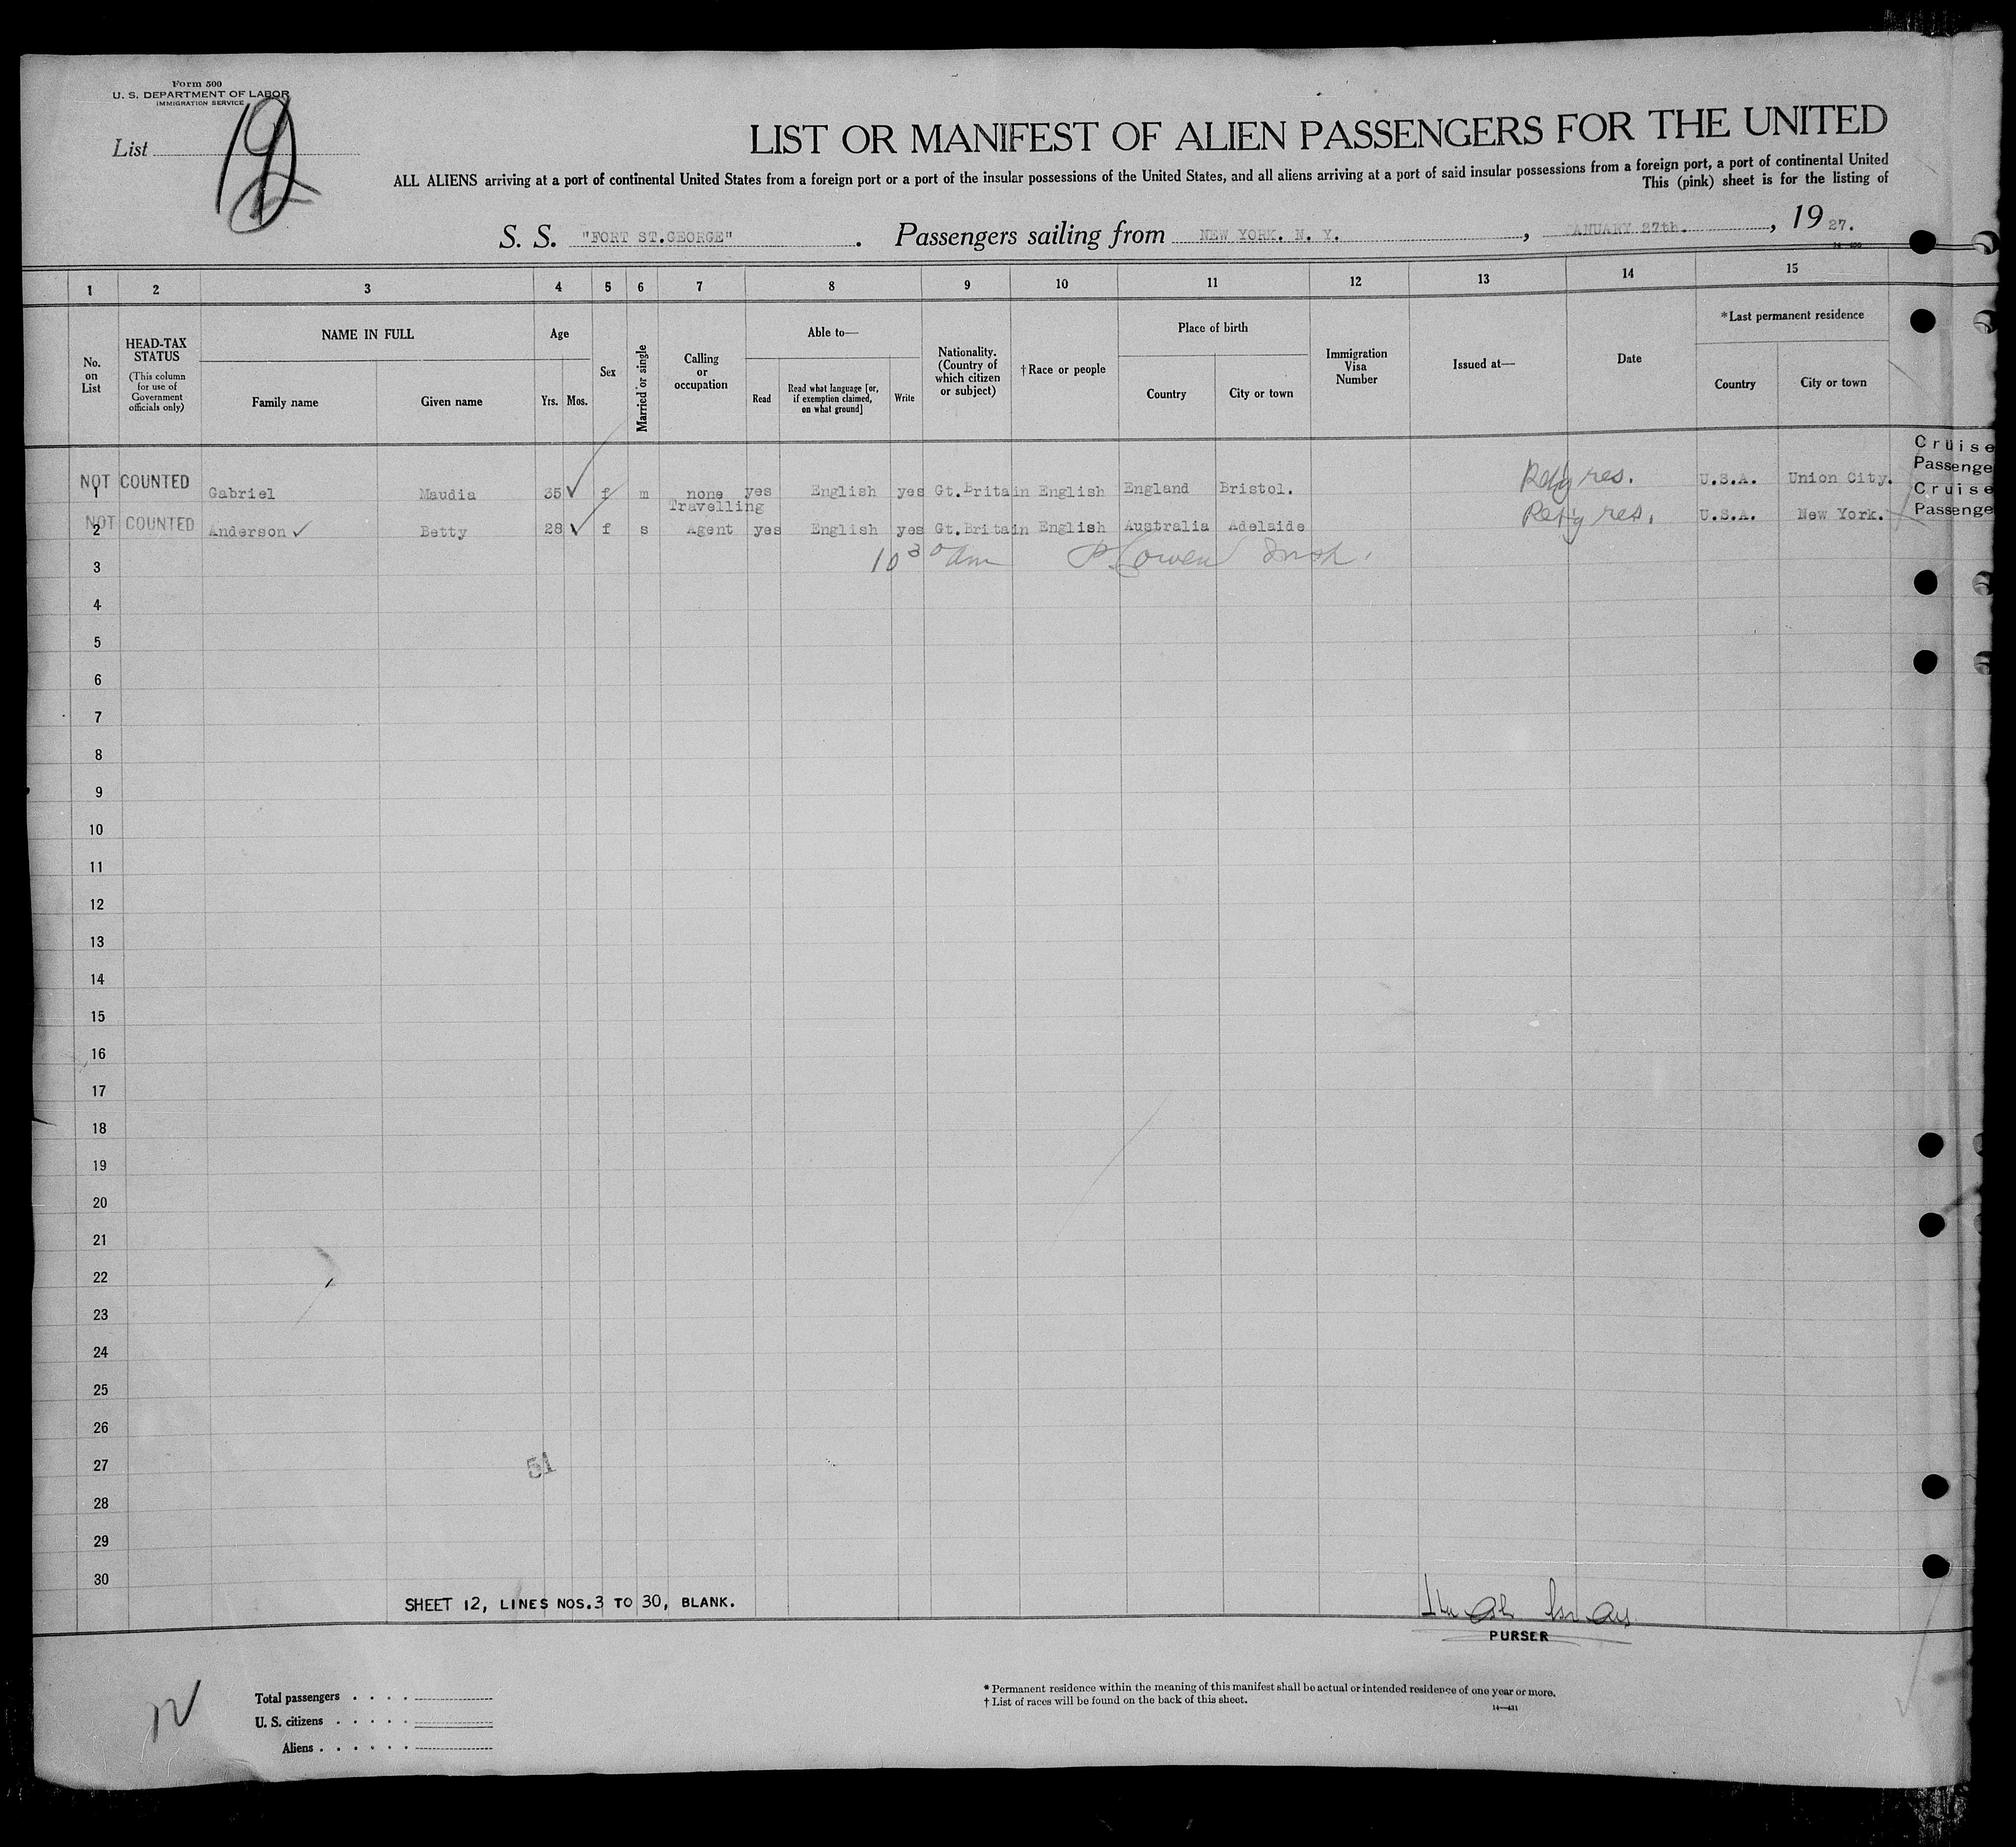 Form 500
U. S. DEPARTMENT OF LABOR
IMMIGRATION SERVICE
List
12
LIST OR MANIFEST OF ALIEN PASSENGERS FOR THE UNITED
ALL ALIENS arriving at a port of continental United States from a foreign port or a port of the insular possessions of the United States, and all aliens arriving at a port of said insular possessions from a foreign port, a port of continental United
This (pink) sheet is for the listing of
S. S. "FORT ST.GEORGE" . Passengers sailing from NEW YORK. N. Y. , JANUARY 27th. , 19 27.
1 2 3 4 5 6 7 8 9 10 11 12 13 14 15
No. on List
HEAD-TAX STATUS
(This column for use of Government officials only)
NAME IN FULL
Family name Given name
Age
Yrs. Mos.
Sex
Married or single
Calling or occupation
Able to—
Read
Read what language [or, if exemption claimed, on what ground]
Write
Nationality. (Country of which citizen or subject)
†Race or people
Place of birth
Country City or town
Immigration Visa Number
Issued at—
Date
*Last permanent residence
Country City or town
NOT COUNTED
1 Gabriel Maudia 35 f m none yes English yes Gt.Britain English England Bristol. res. U.S.A. Union City. Cruise Passenge
NOT COUNTED
2 Anderson Betty 28 f s Travelling Agent yes English yes Gt.Britain English Australia Adelaide res. U.S.A. New York. Cruise Passenge
10 30 am
3
4
5
6
7
8
9
10
11
12
13
14
15
16
17
18
19
20
21
22
23
24
25
26
27
51
28
29
30
SHEET 12, LINES NOS.3 TO 30, BLANK.
PURSER
12
Total passengers . . . .
U. S. citizens . . . . .
Aliens . . . . . .
* Permanent residence within the meaning of this manifest shall be actual or intended residence of one year or more.
† List of races will be found on the back of this sheet.
14—431